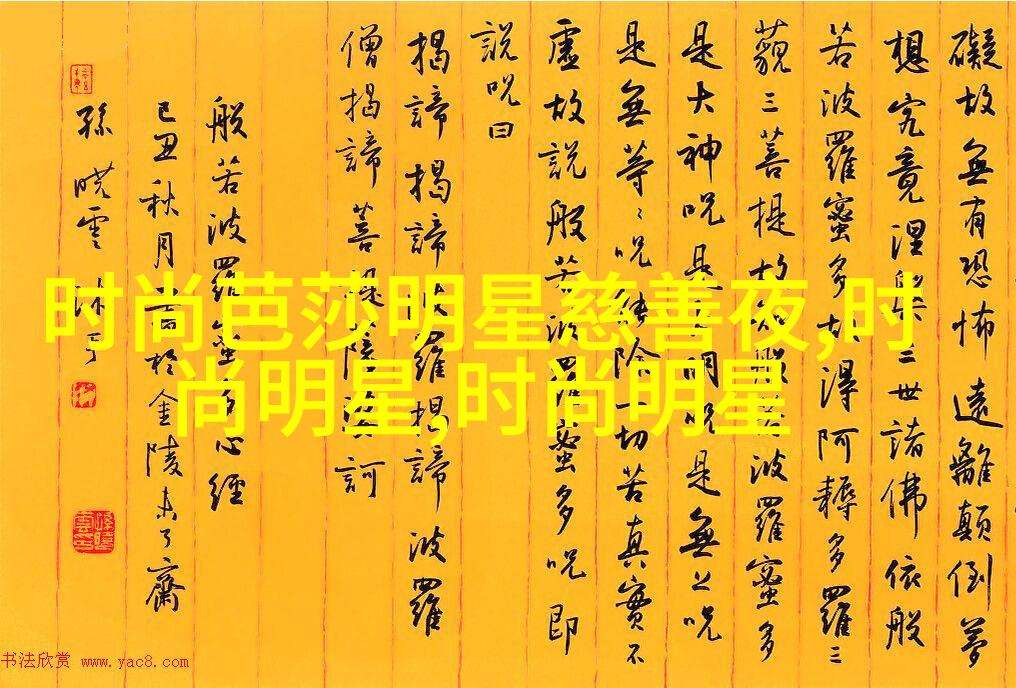 礙故無有恐怖遠離顛倒夢
想究竟涅槃三世諸佛依般
若波羅蜜多故得阿耨多羅三
藐三菩提故知般若波羅蜜多
是大神呪是大明呪是無上呪
是無等〻呪能除一切苦真實不
虛故說般若波羅蜜多呪即
說呪曰
揭諦揭諦波羅揭諦波羅
僧揭諦菩提薩婆訶
般若波羅蜜多心經
己丑秋月於金陵未了齋
孫曉雲沐手
时尚芭莎明星慈善夜,时
尚明星,时尚明星
书法欣赏 www.yac8.com